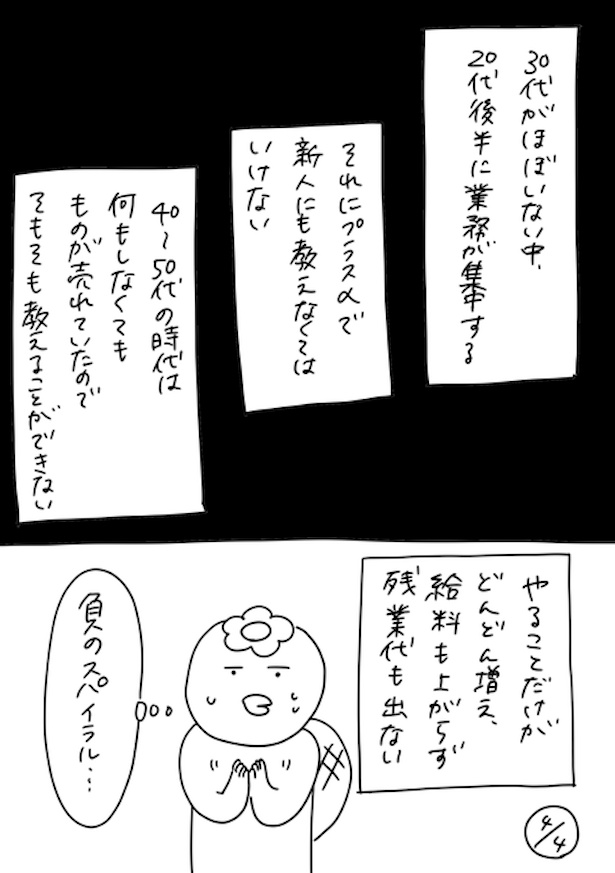 30代がほぼいない中、
20代後半に業務が集中する
それにプラスαで
新人にも教えなくては
いけない
40〜50代の時代は
何もしなくても
ものが売れていたので
そもそも教えることができない
やることだけが
どんどん増え、
給料も上がらず
残業代も出ない
負のスパイラル…
4/4